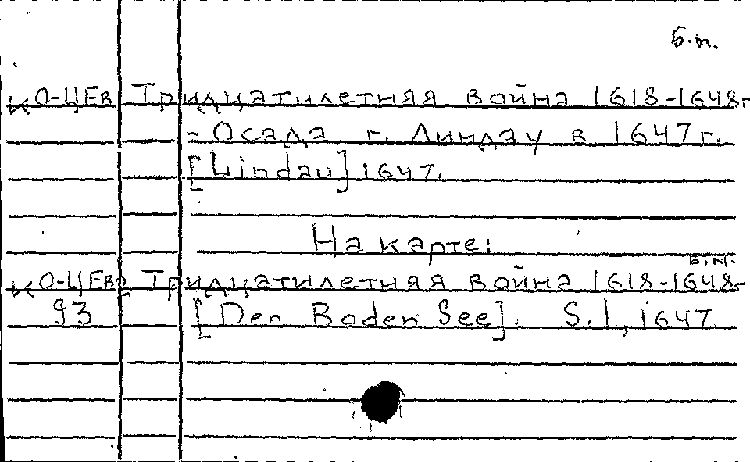 Б.п.
КО-ЦЕв Тридцатилетняя война 1618-1648г
- Осада г. Линдау в 1647 г.
[Lindau] 1647.
На карте:
Б.п.
КО-ЦЕв Тридцатилетняя война 1618-1648-
93 [Der Boden See]. S.l, 1647